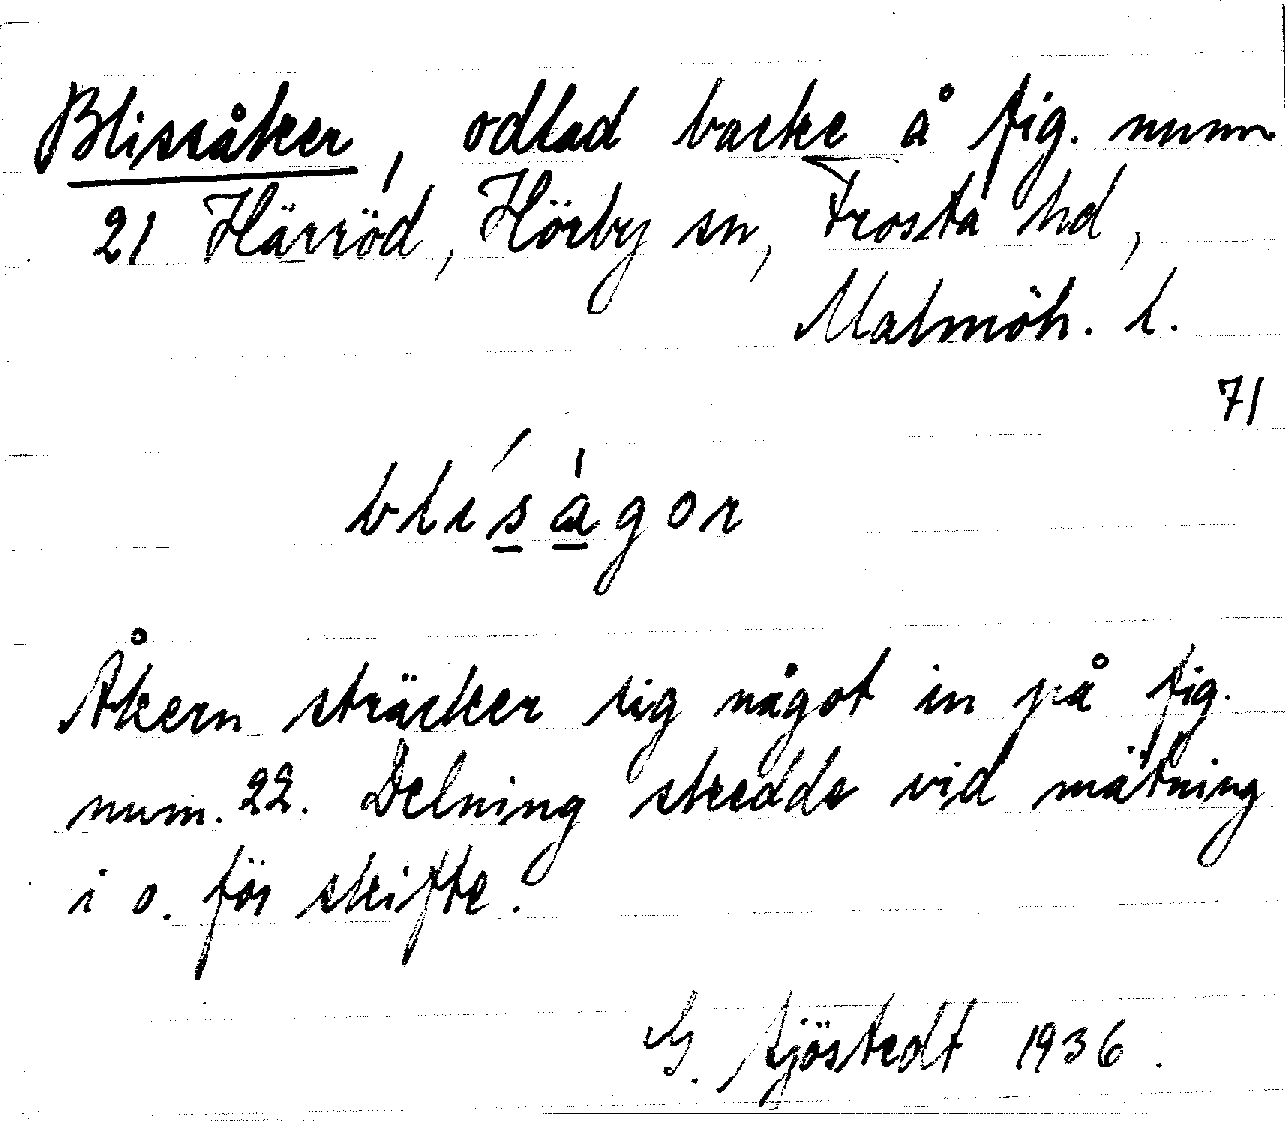 Blissåker, odlad backe å fig. num
21 Härröd, Hörby sn, Frosta hd,
Malmöh. l.
71
blísàgor
Åkern sträcker sig något in på fig.
num. 22. Delning skedde vid mätning
i o. för skifte.
G. Sjöstedt 1936.